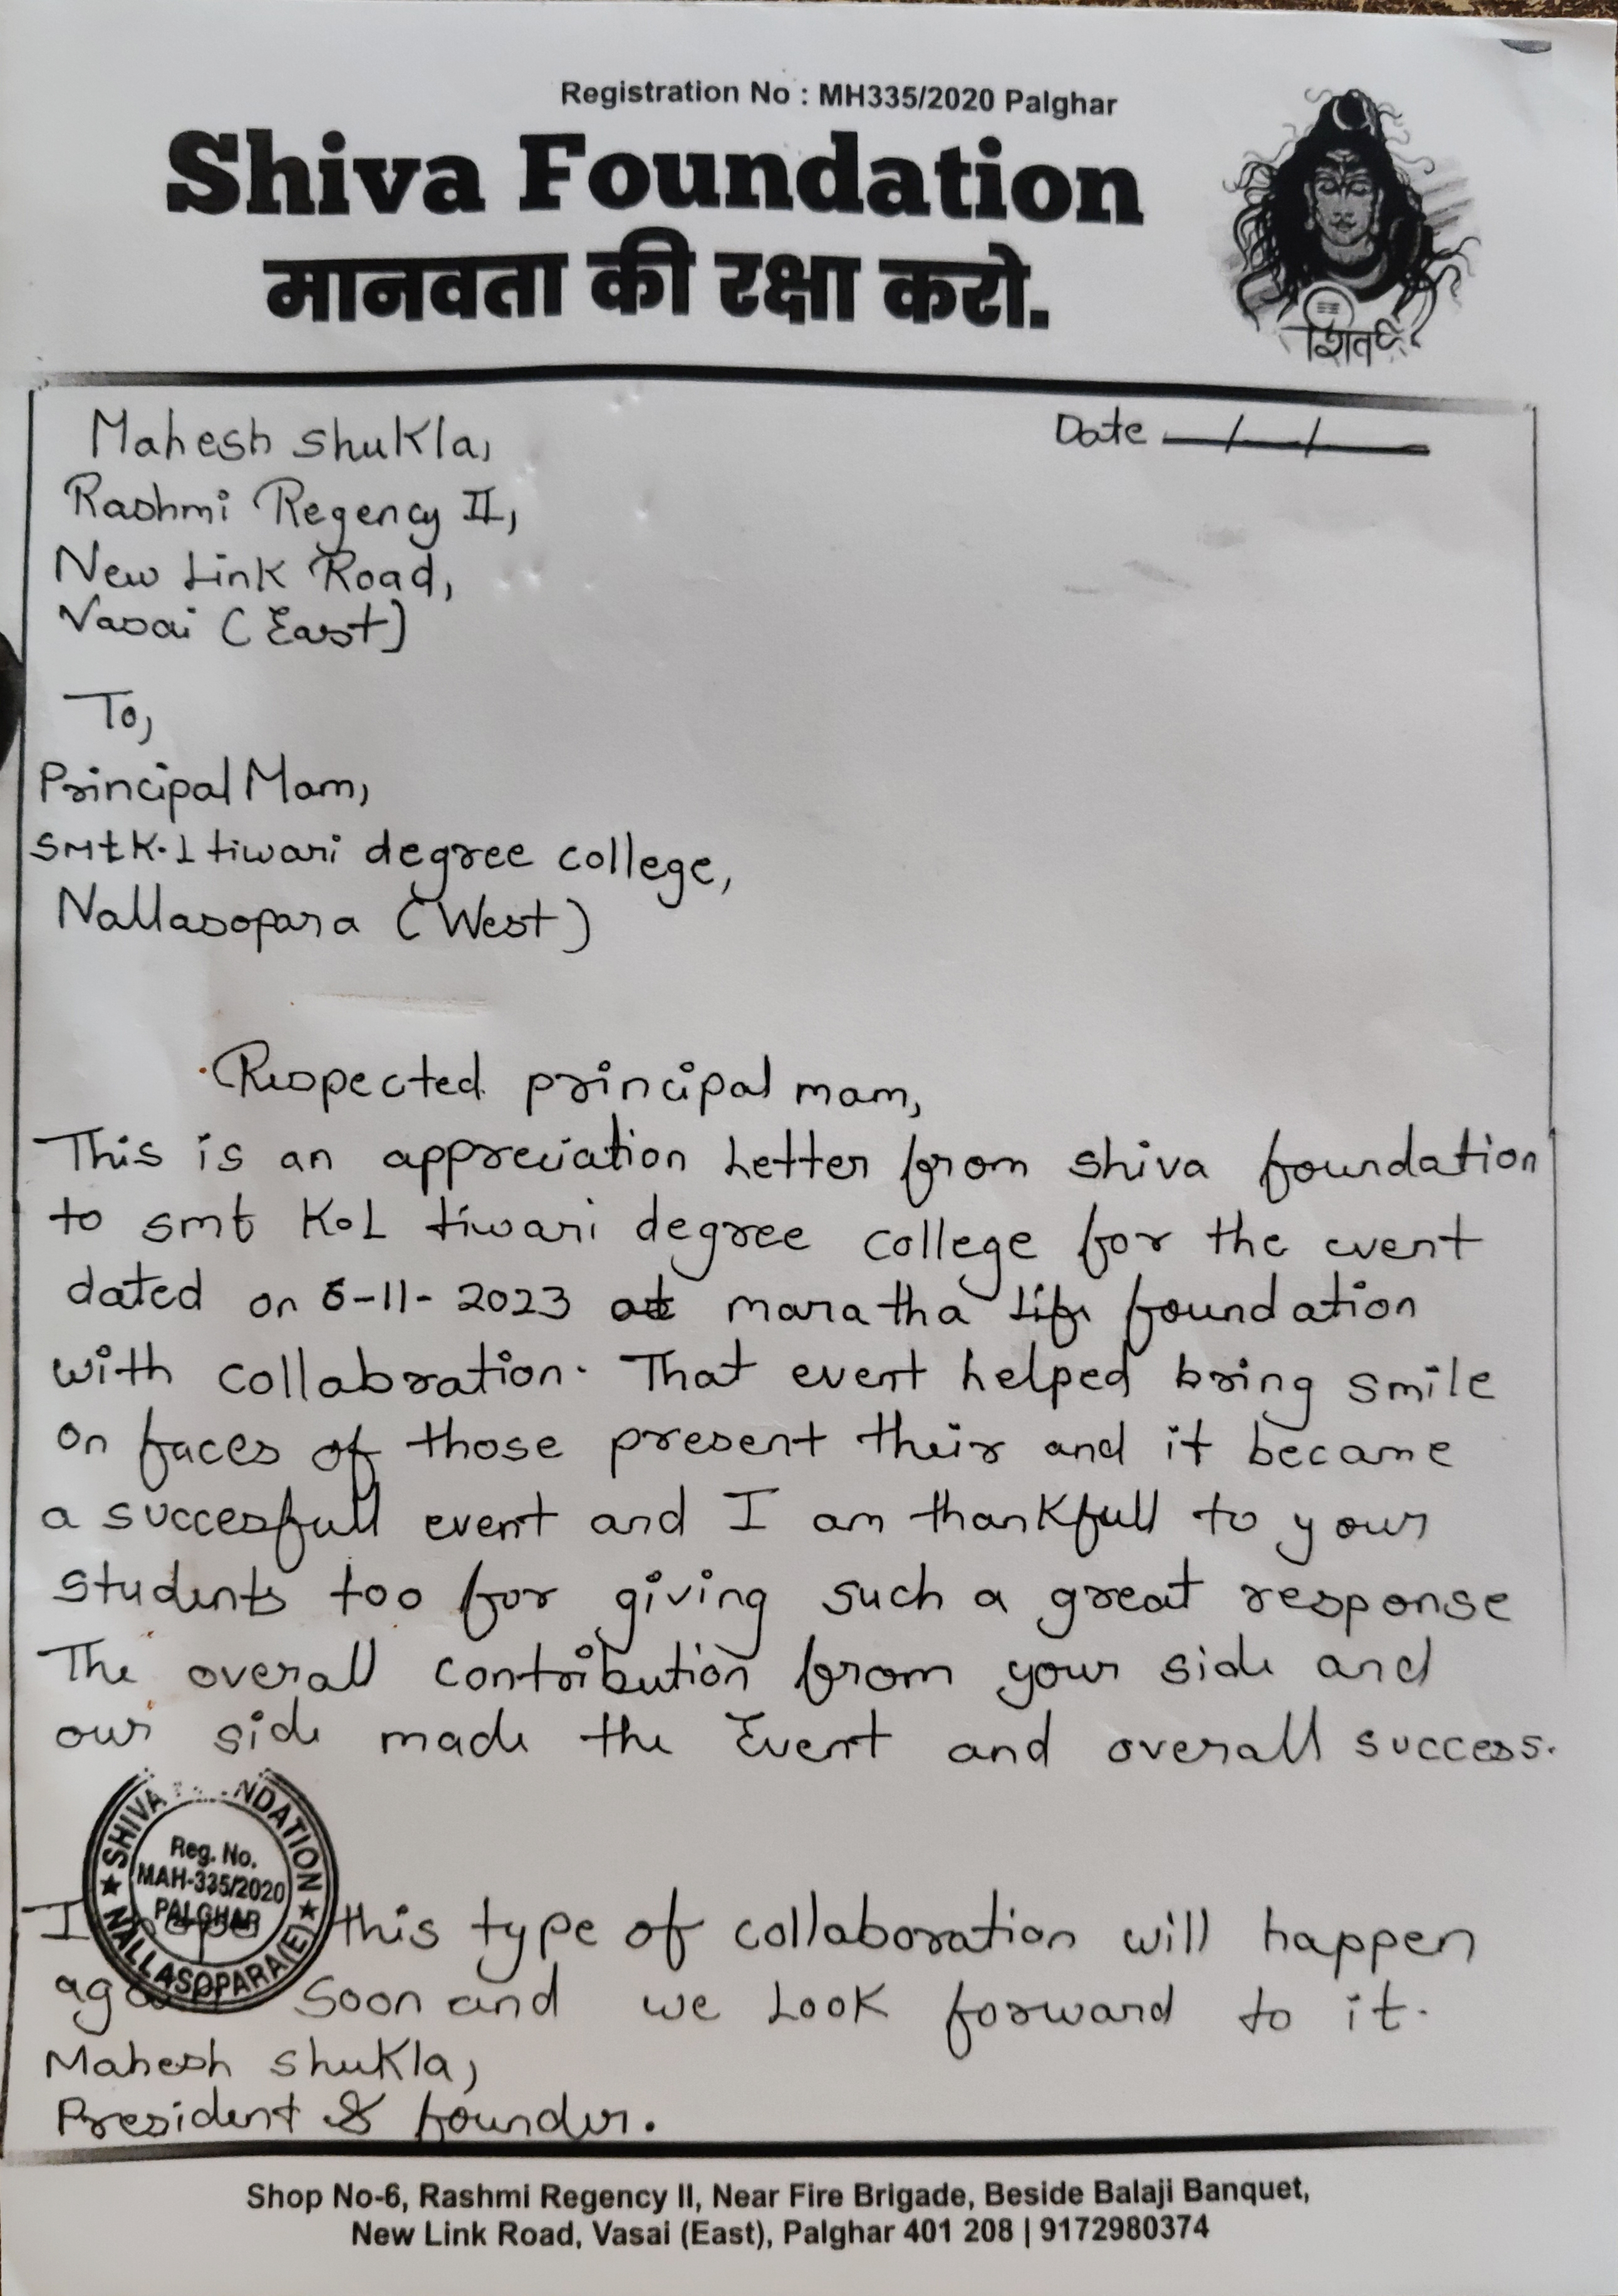 Registration No : MH335/2020 Palghar
Shiva Foundation
मानवता की रक्षा करो.
Mahesh shukla,
Date _/_/_
Rashmi Regency II,
New Link Road,
Vasai (East)
To,
Principal Mam,
smt K.L tiwari degree college,
Nallasopara (West)
Respected principal mam,
This is an appreciation Letter from shiva foundation
to smt K.L tiwari degree college for the event
dated on 6-11-2023 at maratha life foundation
with collabration. That event helped bring smile
on faces of those present their and it became
a succesfull event and I am thankfull to your
students too for giving such a great response
The overall contribution from your side and
our side made the Event and overall success.
SHIVA FOUNDATION
Reg. No.
MAH-335/2020
PALGHAR
NALLASOPARA(E)
I hope this type of collaboration will happen
again soon and we Look forward to it.
Mahesh shukla,
President & founder.
Shop No-6, Rashmi Regency II, Near Fire Brigade, Beside Balaji Banquet,
New Link Road, Vasai (East), Palghar 401 208 | 9172980374